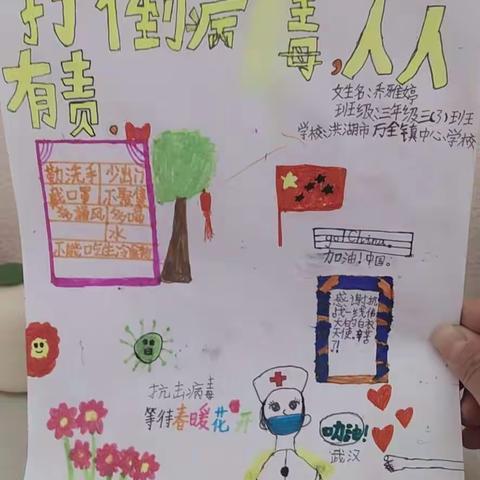 打倒病毒,人人
有责.
女生名:乔雅婷
班级:三年级三(3)班班
学校:洪湖市万全镇中心学校
勤洗手 少出门
戴口罩 不聚集
多通风 多喝
水
不能口吃生冷
go! China.
加油!中国。
感谢抗
战一线伟
大的白衣
天使,辛苦
了!
抗击病毒
等待春暖花开
加油!
武汉